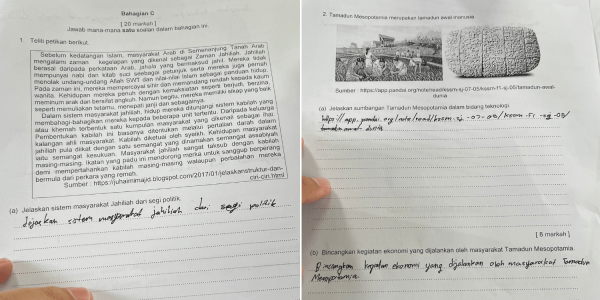 Bahagian C
[ 20 markah ]
Jawab mana-mana satu soalan dalam bahagian ini.
1. Teliti petikan berikut.
Sebelum kedatangan Islam, masyarakat Arab di Semenanjung Tanah Arab
mengalami zaman kegelapan yang dikenali sebagai Zaman Jahiliah. Jahiliah
berasal daripada perkataan Arab, jahala yang bermaksud jahil. Mereka tidak
mempunyai nabi dan kitab suci sebagai petunjuk serta mereka juga pernah
menolak undang-undang Allah SWT dan nilai-nilai Islam sebagai panduan hidup.
Pada zaman ini, mereka mempercayai sihir dan memandang rendah kepada kaum
wanita. Kehidupan mereka penuh dengan kemaksiatan seperti berjudi, berzina,
meminum arak dan bersifat angkuh. Namun begitu, mereka memiliki sikap yang baik
seperti memuliakan tetamu, menepati janji dan sebagainya.
Dalam sistem masyarakat jahiliah, hidup mereka ditunjangi sistem kabilah yang
membahagi-bahagikan mereka kepada beberapa unit tertentu. Daripada keluarga
atau khemah terbentuk satu kumpulan masyarakat yang dikenali sebagai
Pembentukan kabilah ini biasanya ditentukan melalui pertalian darah dalam
kalangan ahli masyarakat. Kabilah diketuai oleh syeikh. Kehidupan masyarakat
jahiliah pula diikat dengan satu semangat yang dinamakan semangat assabiyah
iaitu semangat kesukuan. Masyarakat jahiliah sangat taksub dengan kabilah
masing-masing. Ikatan yang padu ini mendorong mereka untuk sanggup berperang
demi mempertahankan kabilah masing-masing walaupun perbalahan mereka
bermula dari perkara yang remeh.
Sumber : https://juhaimimajid.blogspot.com/2017/01/jelaskanstruktur-dan-
ciri-ciri.html
(a) Jelaskan sistem masyarakat Jahiliah dari segi politik.
Jelaskan sistem masyarakat jahiliah dari segi politik
2. Tamadun Mesopotamia merupakan tamadun awal manusia.
Sumber : https://app.pandai.org/note/read/kssm-sj-07-05/kssm-f1-sj-05/tamadun-awal-
dunia
(a) Jelaskan sumbangan Tamadun Mesopotamia dalam bidang teknologi.
https // app. pandai. org/note/read/kssm-sj-07-05/kssm-f1-sj-05/
tamadun awal dunia
[ 6 markah ]
(b) Bincangkan kegiatan ekonomi yang dijalankan oleh masyarakat Tamadun Mesopotamia.
Bincangkan kegiatan ekonomi yang dijalankan oleh masyarakat Tamadun
Mesopotamia